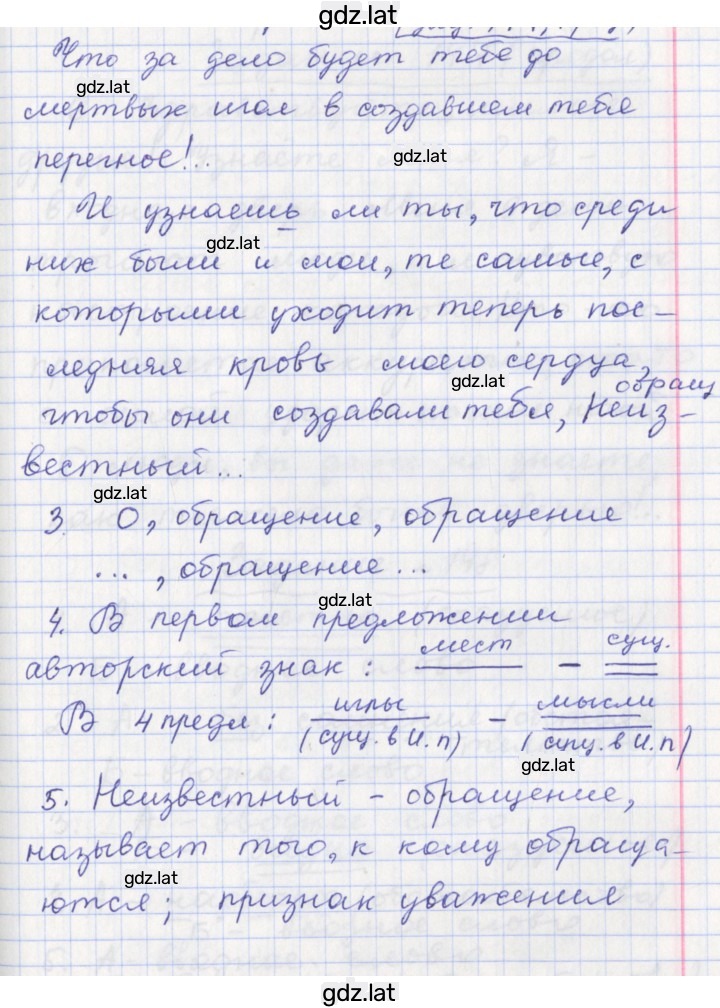 gdz.lat
Что за дело будет тебе до
gdz.lat
мертвых игол в создавшем тебя
перегное!..
gdz.lat
И узнаешь ли ты, что среди
gdz.lat
них были и мои, те самые, с
которыми уходит теперь пос-
ледняя кровь моего сердца,
gdz.lat
обращ
чтобы они создавали тебя, Неиз-
вестный...
gdz.lat
3. О, обращение, обращение
..., обращение...
gdz.lat
4. В первом предложении
авторский знак: мест – сущ.
В 4 предл: иглы – мысли
(сущ. в И.п) (сущ. в И.п)
gdz.lat
5. Неизвестный – обращение,
называет того, к кому обраща-
gdz.lat
ются; признак уважения
gdz.lat